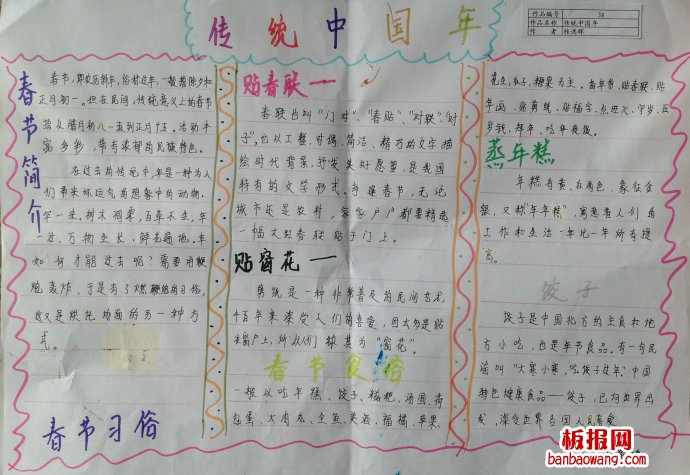 传统中国年
作品编号 38
作品名称 传统中国年
作者
春节简介
春节，即农历新年，俗称过年，一般指除夕和
正月初一。但在民间，传统意义上的春节
是从腊月初八一直到正月十五。活动丰
富多彩，带有浓郁的民族特色。
在过去的传统中，年是一种为人
们带来坏运气的想象中的动物。
年一来，树木凋零，百草不生；年
一过，万物生长，鲜花遍地。年
如何才能过去呢？需要用鞭
炮轰炸，于是有了燃鞭炮的习俗，
这又是烘托场面的另一种方
式。
春节习俗
贴春联一
春联也叫“门对”、“春贴”、“对联”、“对
子”，它以工整、对偶、简洁、精巧的文字描
绘时代背景，抒发美好愿望，是我国
特有的文学形式。每逢春节，无论
城市还是农村，家家户户都要精选
一幅大红春联贴于门上。
贴窗花一
剪纸是一种非常普及的民间艺术，
千百年来深受人们的喜爱，因大多是贴
在窗户上，所以人们称其为“窗花”。
春节食俗
一般以吃年糕、饺子、糍粑、汤圆、荷
包蛋、大肉丸、全鱼、美酒、福橘、苹果、
花生、瓜子、糖果为主。备年货、贴春联、贴
年画、贴剪纸、贴福字、点烛火、守岁、压
岁钱、拜年、吃年夜饭。
蒸年糕
年糕有黄、白两色，象征金
银，又称“年年糕”，寓意着人们的
工作和生活一年比一年所有提
高。
饺子
饺子是中国北方的主食和地
方小吃，也是年节食品。有一句民
谣叫“大寒小寒，吃饺子过年。”中国
特色健康食品——饺子，已向世界出
发，深受世界各国人民喜爱
板报网
banbaowang.com